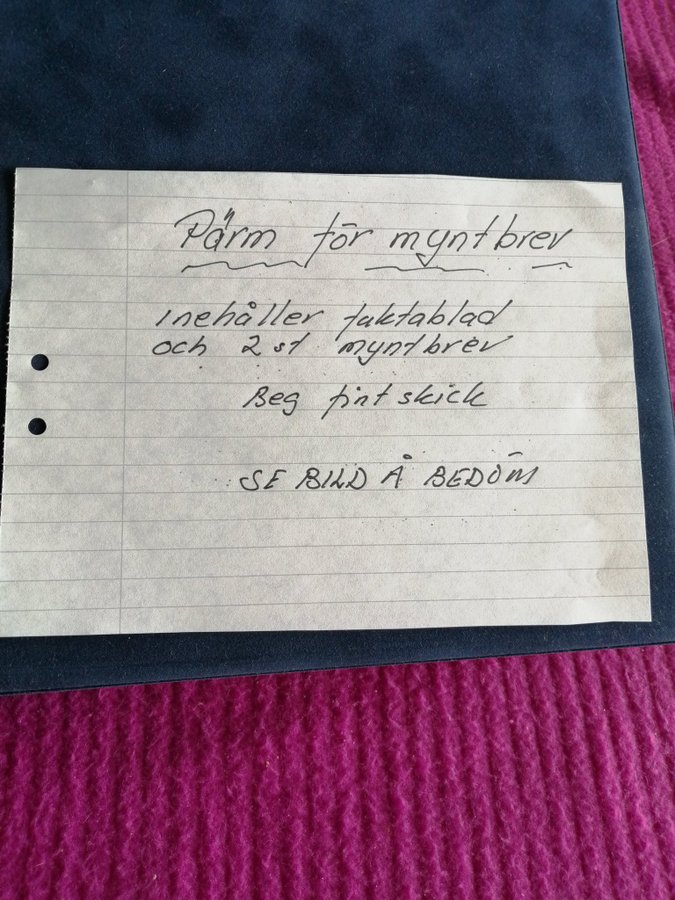 Pärm för myntbrev
inehåller faktablad
och 2 st myntbrev
Beg fint skick
SE BILD Å BEDÖM